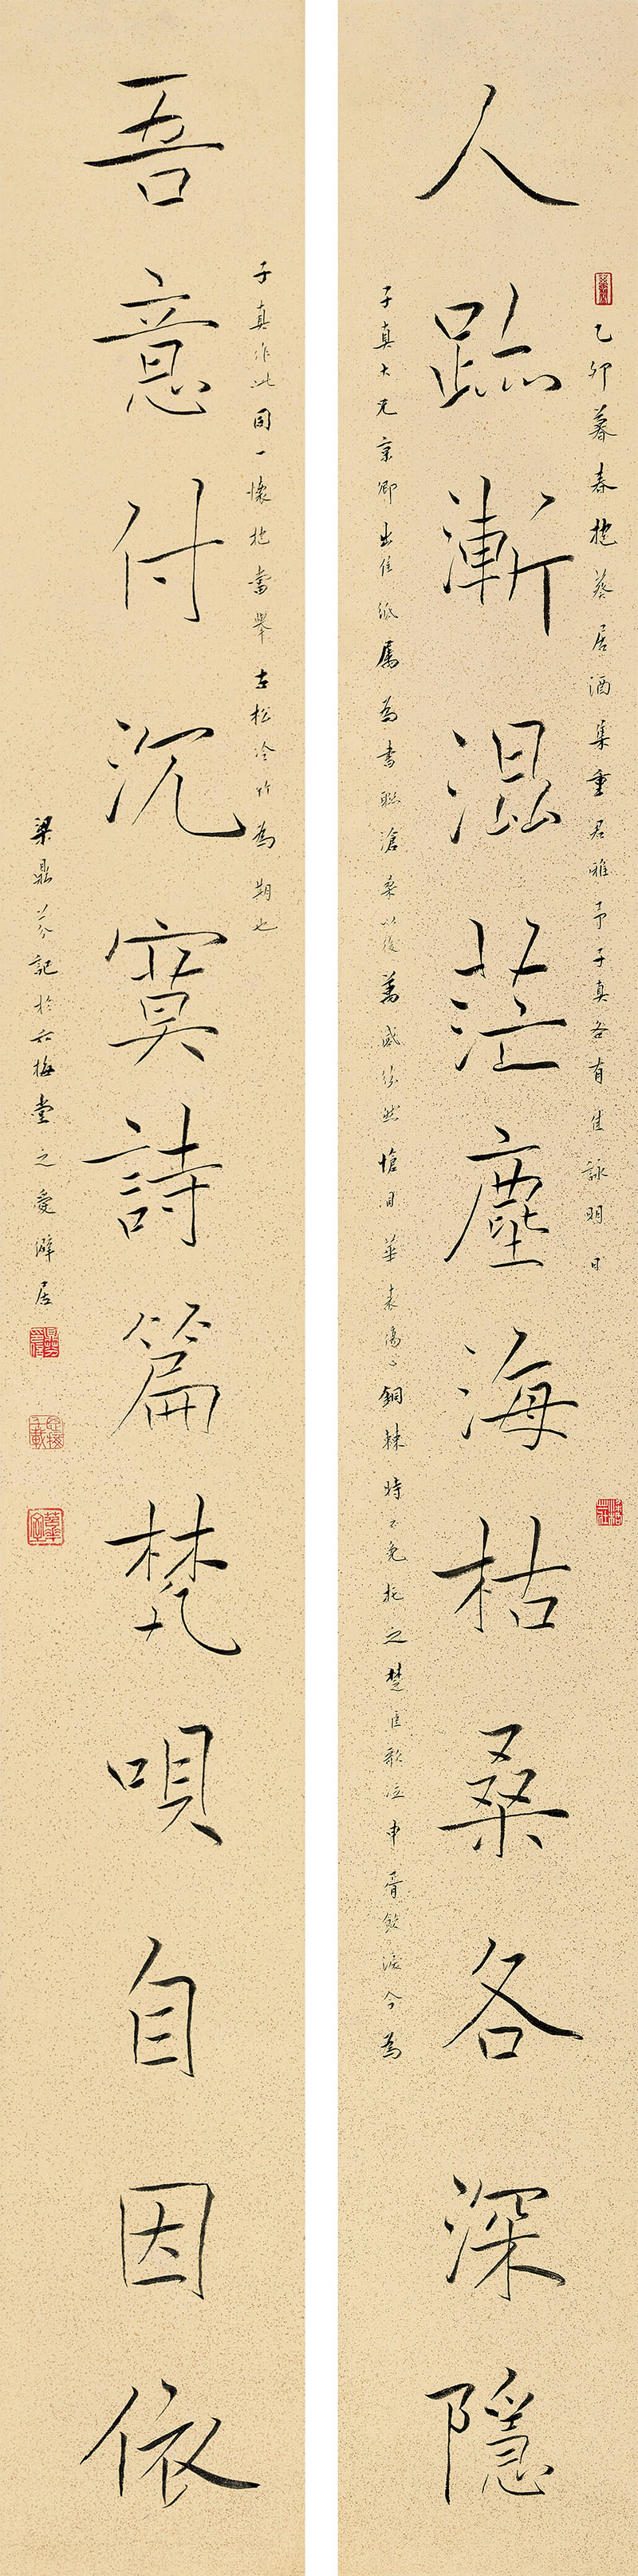 人跡漸混茫塵海枯桑各深隱
乙卯暮春抱葵居酒集重君雅亭子真各有佳詠明日
子真大兄桌卿出佳紙屬為書聯滄桑以後萬感紛然愴目華表傷心銅棘時不免托之楚佳歌泣申胥飲淚今為
吾意付沉寞詩篇梵唄自因依
子真作此同一懷抱當舉古松冷竹為期也
梁鼎芬記於六梅堂之愛澼居